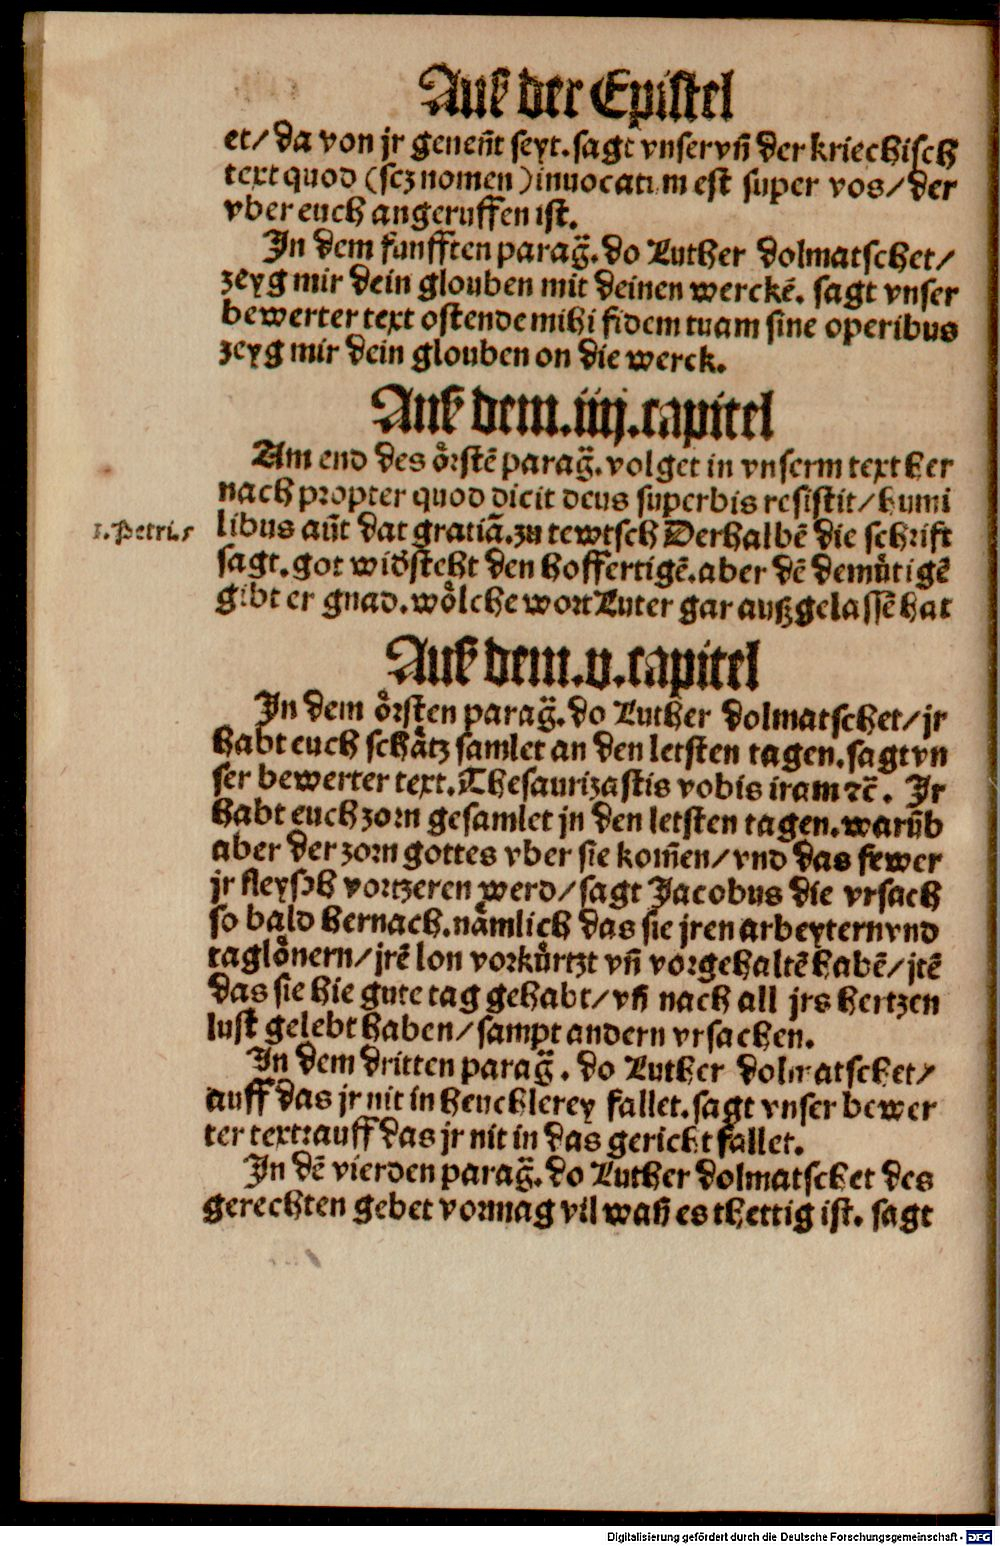 Auß der Epistel
et/ da von jr geneñt seyt. sagt vnser vñ der kriechisch
text quod (scz nomen) inuocatum est super vos/ der
vber euch angeruffen ist.
In dem funfften parag̃. do Luther dolmatschet/
zeyg mir dein glouben mit deinen werckẽ. sagt vnser
bewerter text ostende mihi fidem tuam sine operibus
zeyg mir dein glouben on die werck.
Auß dem. iiij. capitel
Am end des oͤrstẽ parag̃. volget in vnserm text her
nach propter quod dicit deus superbis resistit/ humi
1. Petri. 5
libus aũt dat gratiã. zu tewtsch Derhalbẽ die schrift
sagt. got widsteht den hoffertigẽ. aber dẽ demuͤtigẽ
gibt er gnad. woͤlche wort Luter gar außgelassẽ hat
Auß dem. v. capitel
In dem oͤrsten parag̃. do Luther dolmatschet/ jr
habt euch schaͤtz samlet an den letsten tagen. sagt vn
ser bewerter text. Thesaurizastis vobis iram ⁊c̃. Ir
habt euch zorn gesamlet jn den letsten tagen. warũb
aber der zorn gottes vber sie kom̃en/ vnd das fewer
jr fleysch vortzeren werd/ sagt Jacobus die vrsach
so bald hernach. naͤmlich das sie jren arbeytern vnd
tagloͤnern/ jrẽ lon vorkuͤrtzt vñ vorgehaltẽ habẽ/ jtẽ
das sie hie gute tag gehabt/ vñ nach all jrs hertzen
lust gelebt haben/ sampt andern vrsachen.
In dem dritten parag̃. do Luther dolmatschet/
auff das jr nit in heuchlerey fallet. sagt vnser bewer
ter text: auff das jr nit in das gericht fallet.
In dẽ vierden parag̃. do Luther dolmatschet des
gerechten gebet vormag vil wañ es thettig ist. sagt
Digitalisierung gefördert durch die Deutsche Forschungsgemeinschaft - DFG